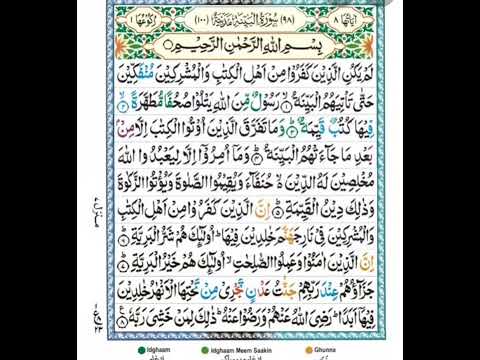 اٰيَاتُهَا ٨ (٩٨) سُوْرَةُ الْبَيِّنَةِ مَدَنِيَّةٌ (١٠٠) رُكُوْعُهَا ١
بِسْمِ اللهِ الرَّحْمٰنِ الرَّحِيْمِ
لَمْ يَكُنِ الَّذِيْنَ كَفَرُوْا مِنْ اَهْلِ الْكِتٰبِ وَالْمُشْرِكِيْنَ مُنْفَكِّيْنَ
حَتّٰى تَاْتِيَهُمُ الْبَيِّنَةُ ۙ ١ رَسُوْلٌ مِّنَ اللهِ يَتْلُوْا صُحُفًا مُّطَهَّرَةً ۙ ٢
فِيْهَا كُتُبٌ قَيِّمَةٌ ؕ ٣ وَمَا تَفَرَّقَ الَّذِيْنَ اُوْتُوا الْكِتٰبَ اِلَّا مِنْۢ
بَعْدِ مَا جَآءَتْهُمُ الْبَيِّنَةُ ؕ ٤ وَمَاۤ اُمِرُوْۤا اِلَّا لِيَعْبُدُوا اللهَ
مُخْلِصِيْنَ لَهُ الدِّيْنَ ۙ حُنَفَآءَ وَيُقِيْمُوا الصَّلٰوةَ وَيُؤْتُوا الزَّكٰوةَ
وَذٰلِكَ دِيْنُ الْقَيِّمَةِ ؕ ٥ اِنَّ الَّذِيْنَ كَفَرُوْا مِنْ اَهْلِ الْكِتٰبِ
وَالْمُشْرِكِيْنَ فِيْ نَارِ جَهَنَّمَ خٰلِدِيْنَ فِيْهَا ؕ اُولٰٓئِكَ هُمْ شَرُّ الْبَرِيَّةِ ؕ ٦
اِنَّ الَّذِيْنَ اٰمَنُوْا وَعَمِلُوا الصّٰلِحٰتِ ۙ اُولٰٓئِكَ هُمْ خَيْرُ الْبَرِيَّةِ ؕ ٧
جَزَآؤُهُمْ عِنْدَ رَبِّهِمْ جَنّٰتُ عَدْنٍ تَجْرِيْ مِنْ تَحْتِهَا الْاَنْهٰرُ خٰلِدِيْنَ
فِيْهَاۤ اَبَدًا ؕ رَضِيَ اللهُ عَنْهُمْ وَرَضُوْا عَنْهُ ؕ ذٰلِكَ لِمَنْ خَشِيَ رَبَّهٗ ۧ ٨
منزل ٧
Idghaam
Idghaam Meem Saakin
Ghunna